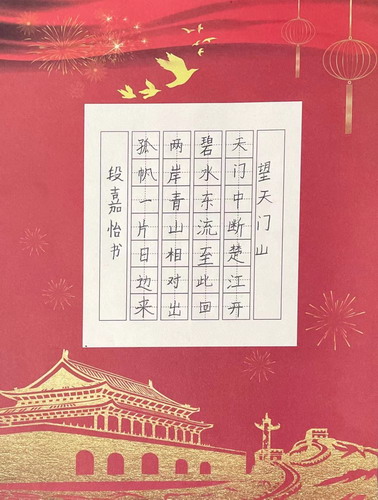 望天门山
天门中断楚江开
碧水东流至此回
两岸青山相对出
孤帆一片日边来
段嘉怡书